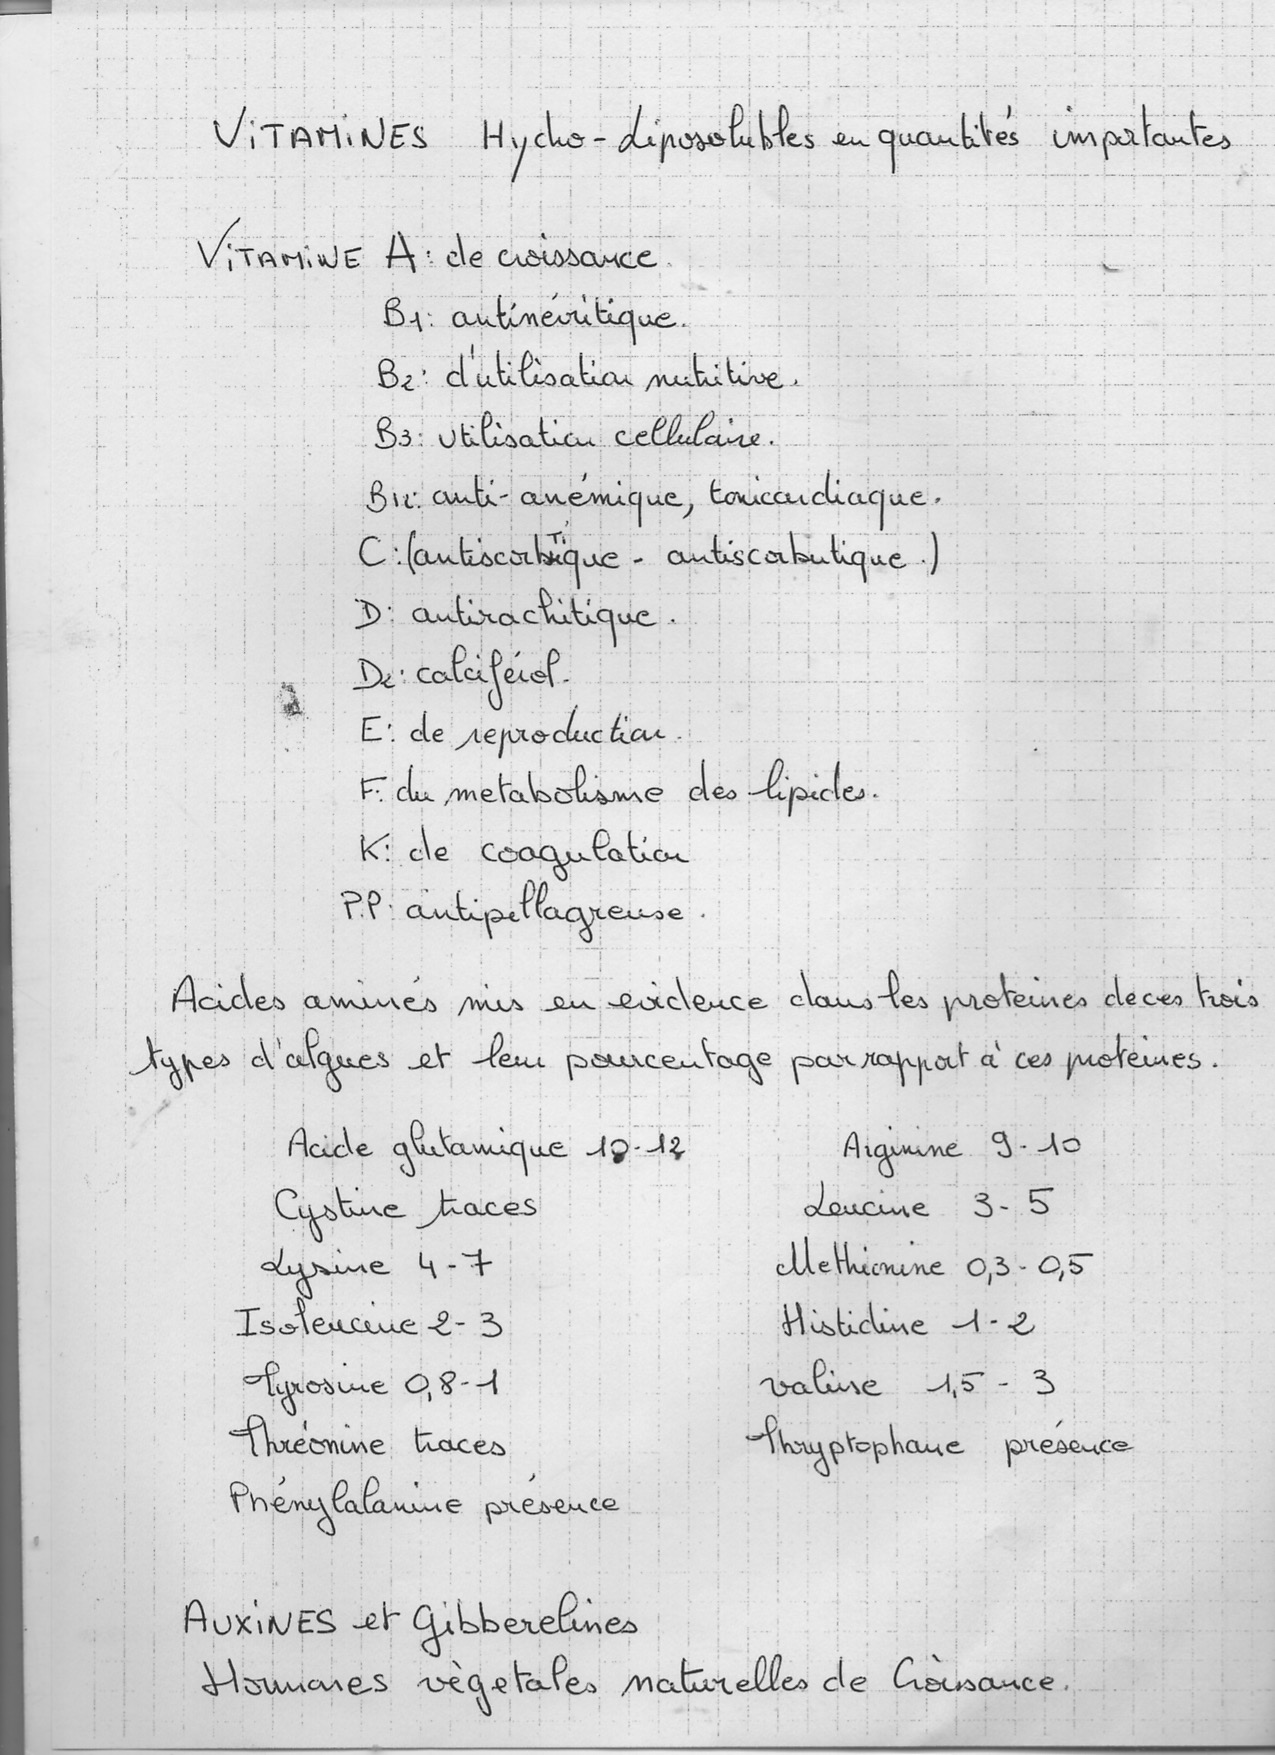 VITAMINES Hydro-Liposolubles en quantités importantes
VITAMINE A: de croissance.
B1: antinévritique.
B2: d'utilisation nutritive.
B3: utilisation cellulaire.
B12: anti-anémique, tonicardiaque.
C: (antiscorbtique - antiscorbutique.)
D: antirachitique.
D2: calciférol.
E: de reproduction.
F: du metabolisme des lipides.
K: de coagulation
P.P: antipellagreuse.
Acides aminés mis en evidence dans les proteines de ces trois
types d'algues et leur pourcentage par rapport à ces protéines.
Acide glutamique 10-12 Arginine 9-10
Cystine traces Leucine 3-5
Lysine 4-7 Methionine 0,3-0,5
Isoleucine 2-3 Histidine 1-2
Tyrosine 0,8-1 Valine 1,5-3
Thréonine traces Thryptophane présence
Phénylalanine présence
AUXINES et Gibberelines
Hormones vègetales naturelles de Croissance.